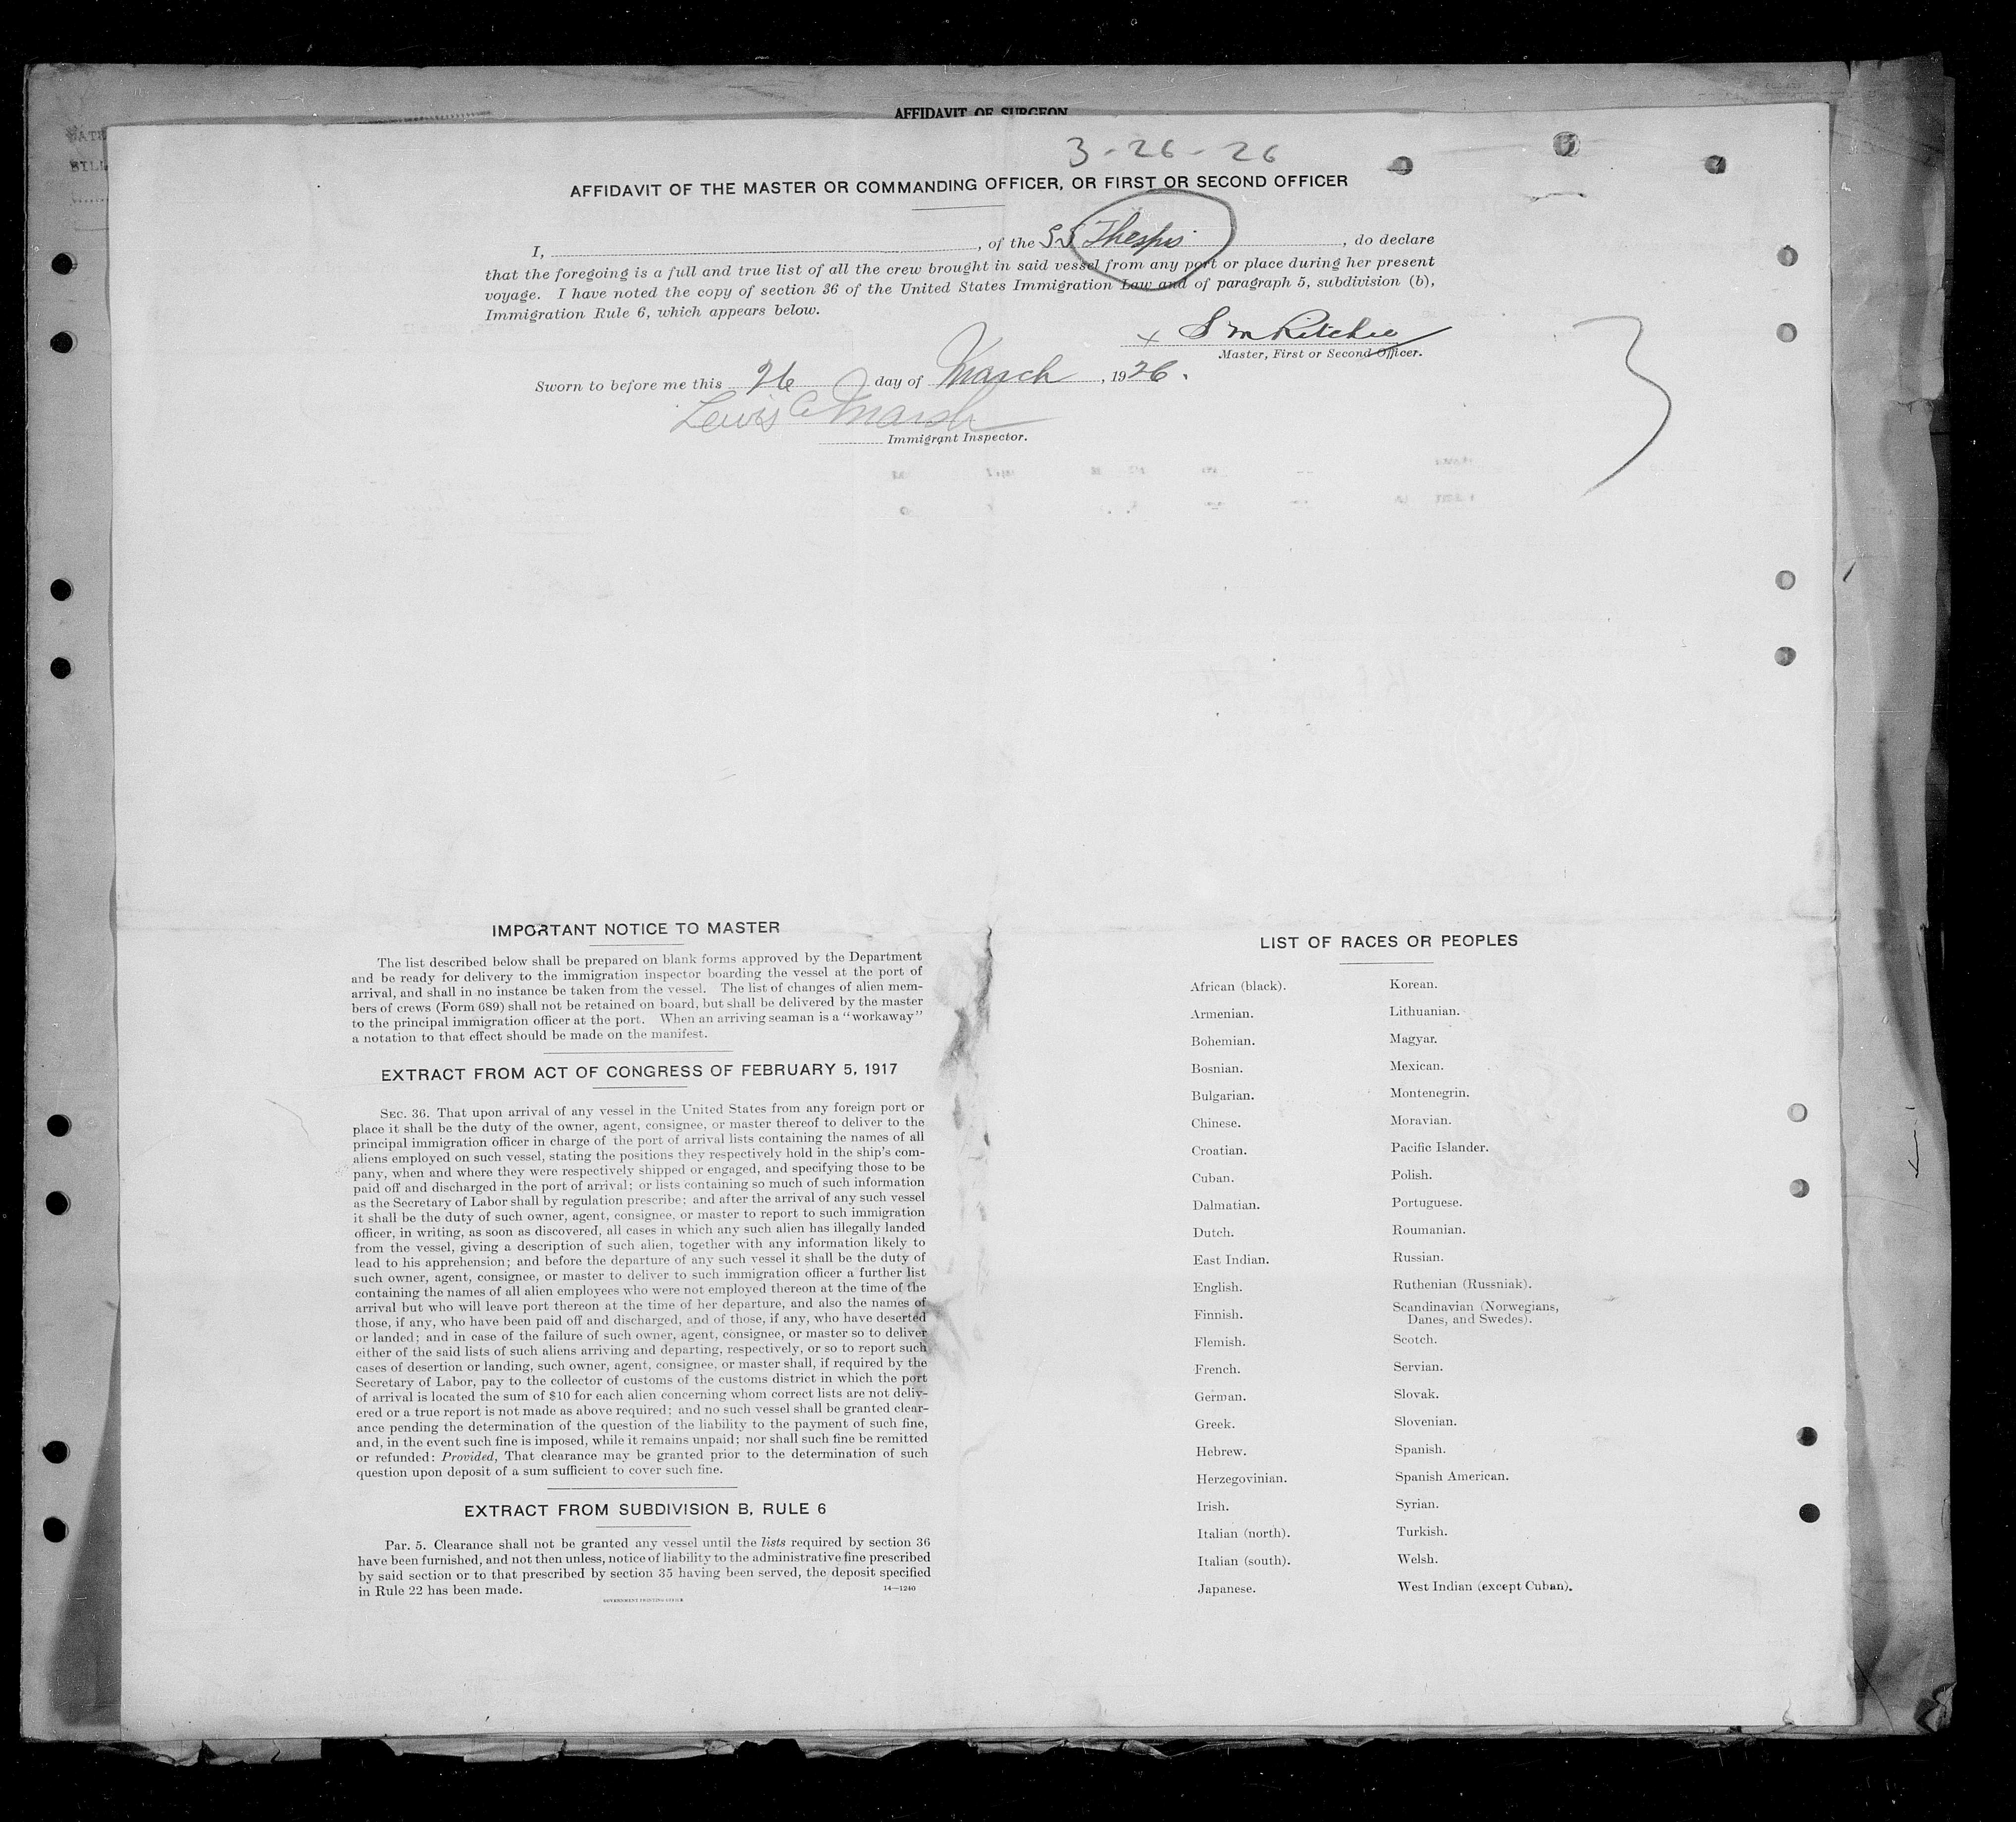 AFFIDAVIT OF SURGEON
3-26-26
AFFIDAVIT OF THE MASTER OR COMMANDING OFFICER, OR FIRST OR SECOND OFFICER
I, , of the SS Thespis , do declare
that the foregoing is a full and true list of all the crew brought in said vessel from any port or place during her present
voyage. I have noted the copy of section 36 of the United States Immigration Law and of paragraph 5, subdivision (b),
Immigration Rule 6, which appears below.
x S M Ritchie
Master, First or Second Officer.
Sworn to before me this 26 day of March, 1926.
Lewis C Marsh
Immigrant Inspector.
IMPORTANT NOTICE TO MASTER
The list described below shall be prepared on blank forms approved by the Department
and be ready for delivery to the immigration inspector boarding the vessel at the port of
arrival, and shall in no instance be taken from the vessel. The list of changes of alien mem-
bers of crews (Form 689) shall not be retained on board, but shall be delivered by the master
to the principal immigration officer at the port. When an arriving seaman is a "workaway"
a notation to that effect should be made on the manifest.
EXTRACT FROM ACT OF CONGRESS OF FEBRUARY 5, 1917
SEC. 36. That upon arrival of any vessel in the United States from any foreign port or
place it shall be the duty of the owner, agent, consignee, or master thereof to deliver to the
principal immigration officer in charge of the port of arrival lists containing the names of all
aliens employed on such vessel, stating the positions they respectively hold in the ship's com-
pany, when and where they were respectively shipped or engaged, and specifying those to be
paid off and discharged in the port of arrival; or lists containing so much of such information
as the Secretary of Labor shall by regulation prescribe; and after the arrival of any such vessel
it shall be the duty of such owner, agent, consignee, or master to report to such immigration
officer, in writing, as soon as discovered, all cases in which any such alien has illegally landed
from the vessel, giving a description of such alien, together with any information likely to
lead to his apprehension; and before the departure of any such vessel it shall be the duty of
such owner, agent, consignee, or master to deliver to such immigration officer a further list
containing the names of all alien employees who were not employed thereon at the time of the
arrival but who will leave port thereon at the time of her departure, and also the names of
those, if any, who have been paid off and discharged, and of those, if any, who have deserted
or landed; and in case of the failure of such owner, agent, consignee, or master so to deliver
either of the said lists of such aliens arriving and departing, respectively, or so to report such
cases of desertion or landing, such owner, agent, consignee, or master shall, if required by the
Secretary of Labor, pay to the collector of customs of the customs district in which the port
of arrival is located the sum of $10 for each alien concerning whom correct lists are not deliv-
ered or a true report is not made as above required; and no such vessel shall be granted clear-
ance pending the determination of the question of the liability to the payment of such fine,
and, in the event such fine is imposed, while it remains unpaid; nor shall such fine be remitted
or refunded: Provided, That clearance may be granted prior to the determination of such
question upon deposit of a sum sufficient to cover such fine.
EXTRACT FROM SUBDIVISION B, RULE 6
Par. 5. Clearance shall not be granted any vessel until the lists required by section 36
have been furnished, and not then unless, notice of liability to the administrative fine prescribed
by said section or to that prescribed by section 35 having been served, the deposit specified
in Rule 22 has been made.
14—1240
GOVERNMENT PRINTING OFFICE
LIST OF RACES OR PEOPLES
African (black).
Armenian.
Bohemian.
Bosnian.
Bulgarian.
Chinese.
Croatian.
Cuban.
Dalmatian.
Dutch.
East Indian.
English.
Finnish.
Flemish.
French.
German.
Greek.
Hebrew.
Herzegovinian.
Irish.
Italian (north).
Italian (south).
Japanese.
Korean.
Lithuanian.
Magyar.
Mexican.
Montenegrin.
Moravian.
Pacific Islander.
Polish.
Portuguese.
Roumanian.
Russian.
Ruthenian (Russniak).
Scandinavian (Norwegians,
Danes, and Swedes).
Scotch.
Servian.
Slovak.
Slovenian.
Spanish.
Spanish American.
Syrian.
Turkish.
Welsh.
West Indian (except Cuban).